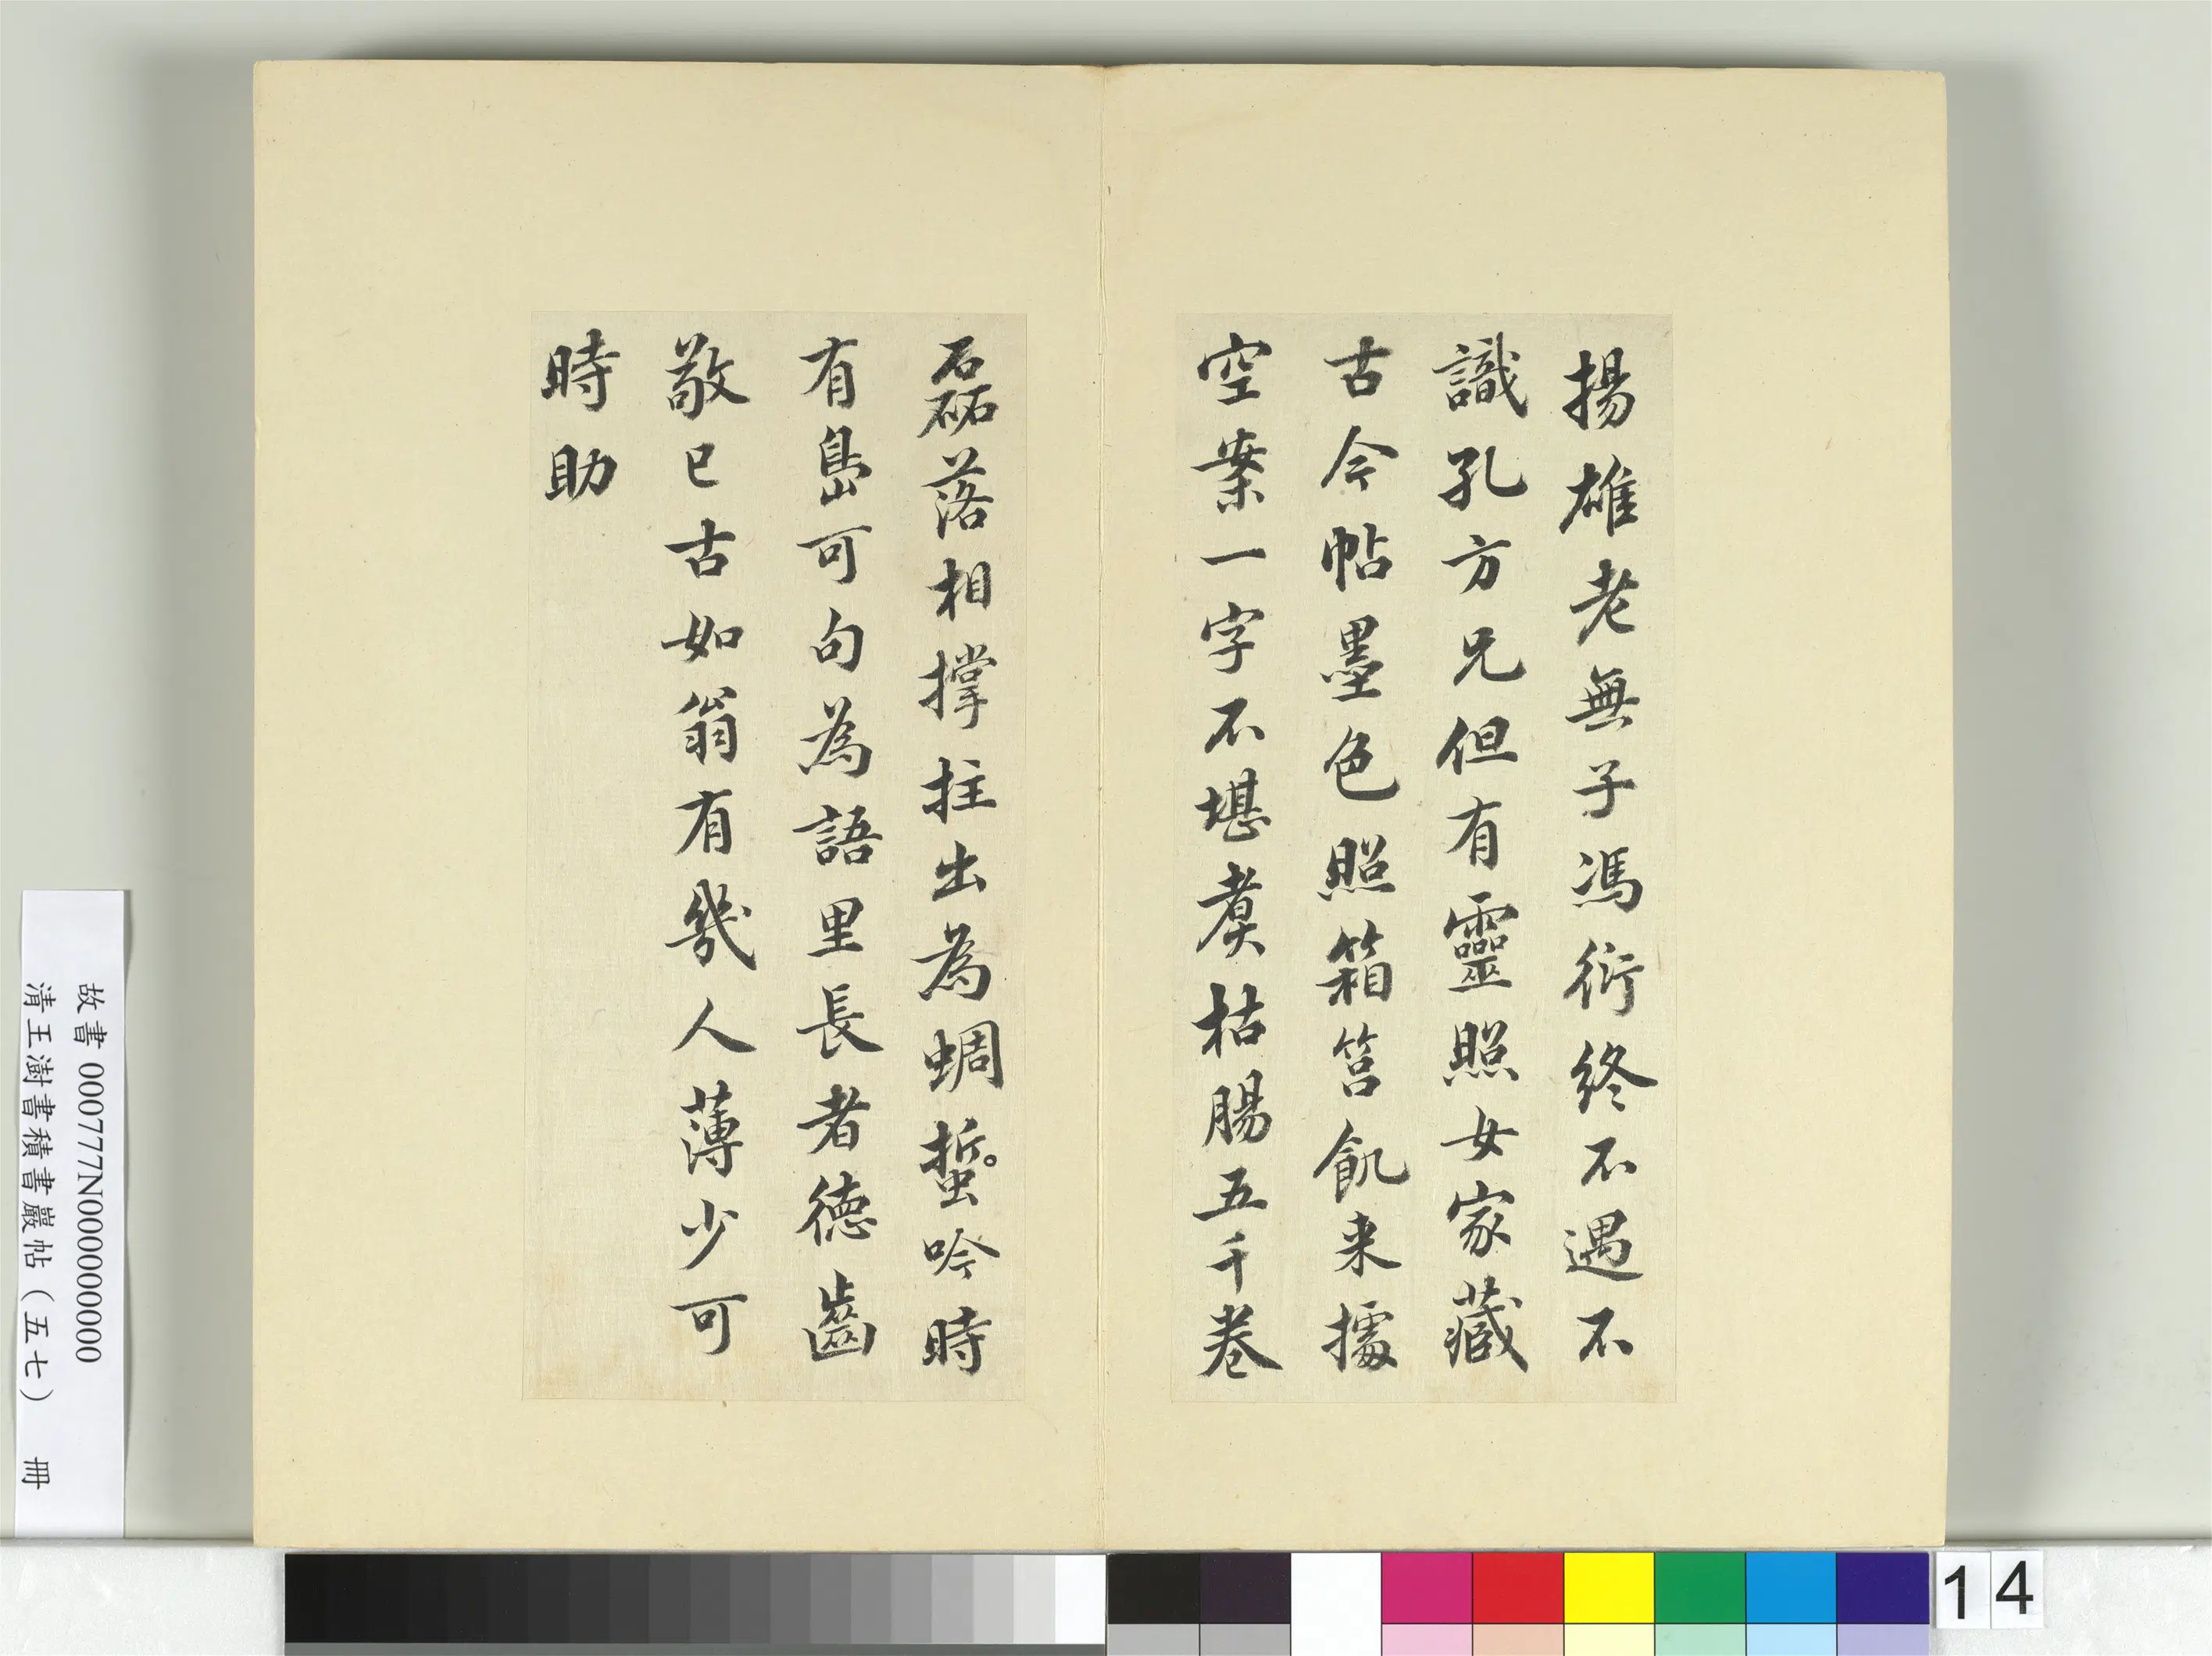 揚雄老無子馮衍終不遇不
識孔方兄但有靈照女家藏
古今帖墨色照箱筥飢来據
空案一字不堪煑枯腸五千卷
磊落相撐拄出為蜩蛩吟時
有島可句為語里長者德齒
敬已古如翁有幾人薄少可
時助
故書 000777N000000000
清王澍書積書巖帖(五七) 冊
14